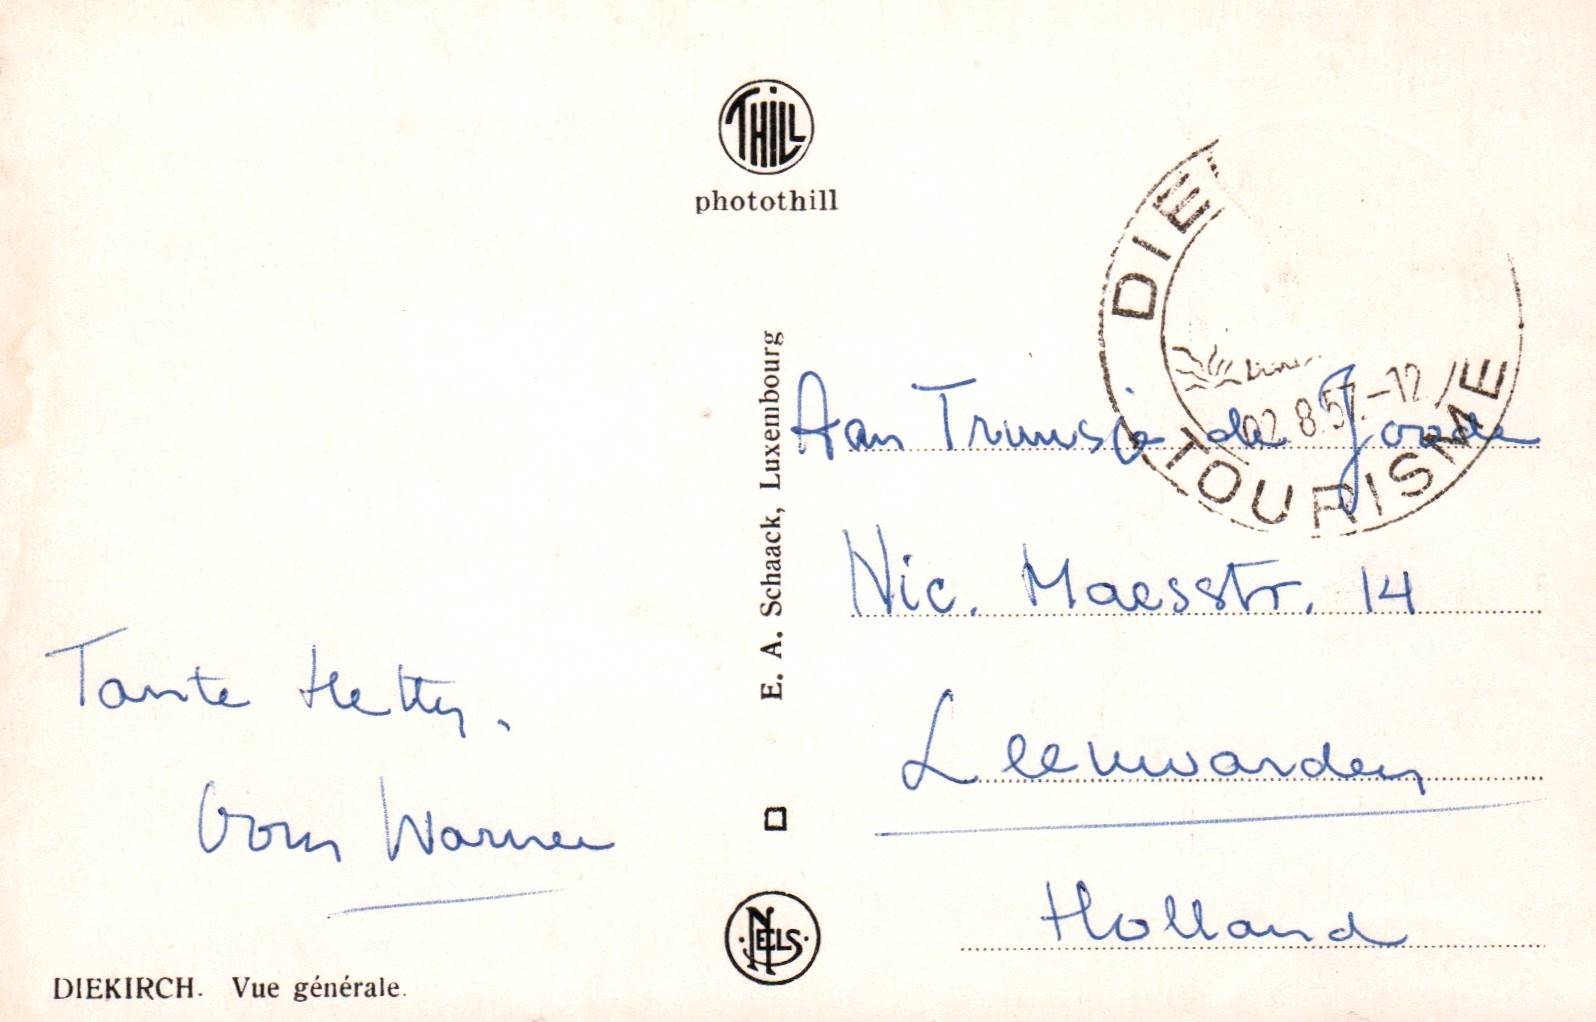 THILL
photothill
DIE
TOURISME
02.8.57.-12
E. A. Schaack, Luxembourg
Aan Truusje de Goede
Nic. Maesstr. 14
Leeuwarden
Holland
Tante Hetty.
Oom Warner
NELS
DIEKIRCH. Vue générale.